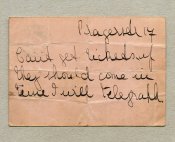 Pragerstr 17
Can't get tickets if
they should come in
time I will telegraph.